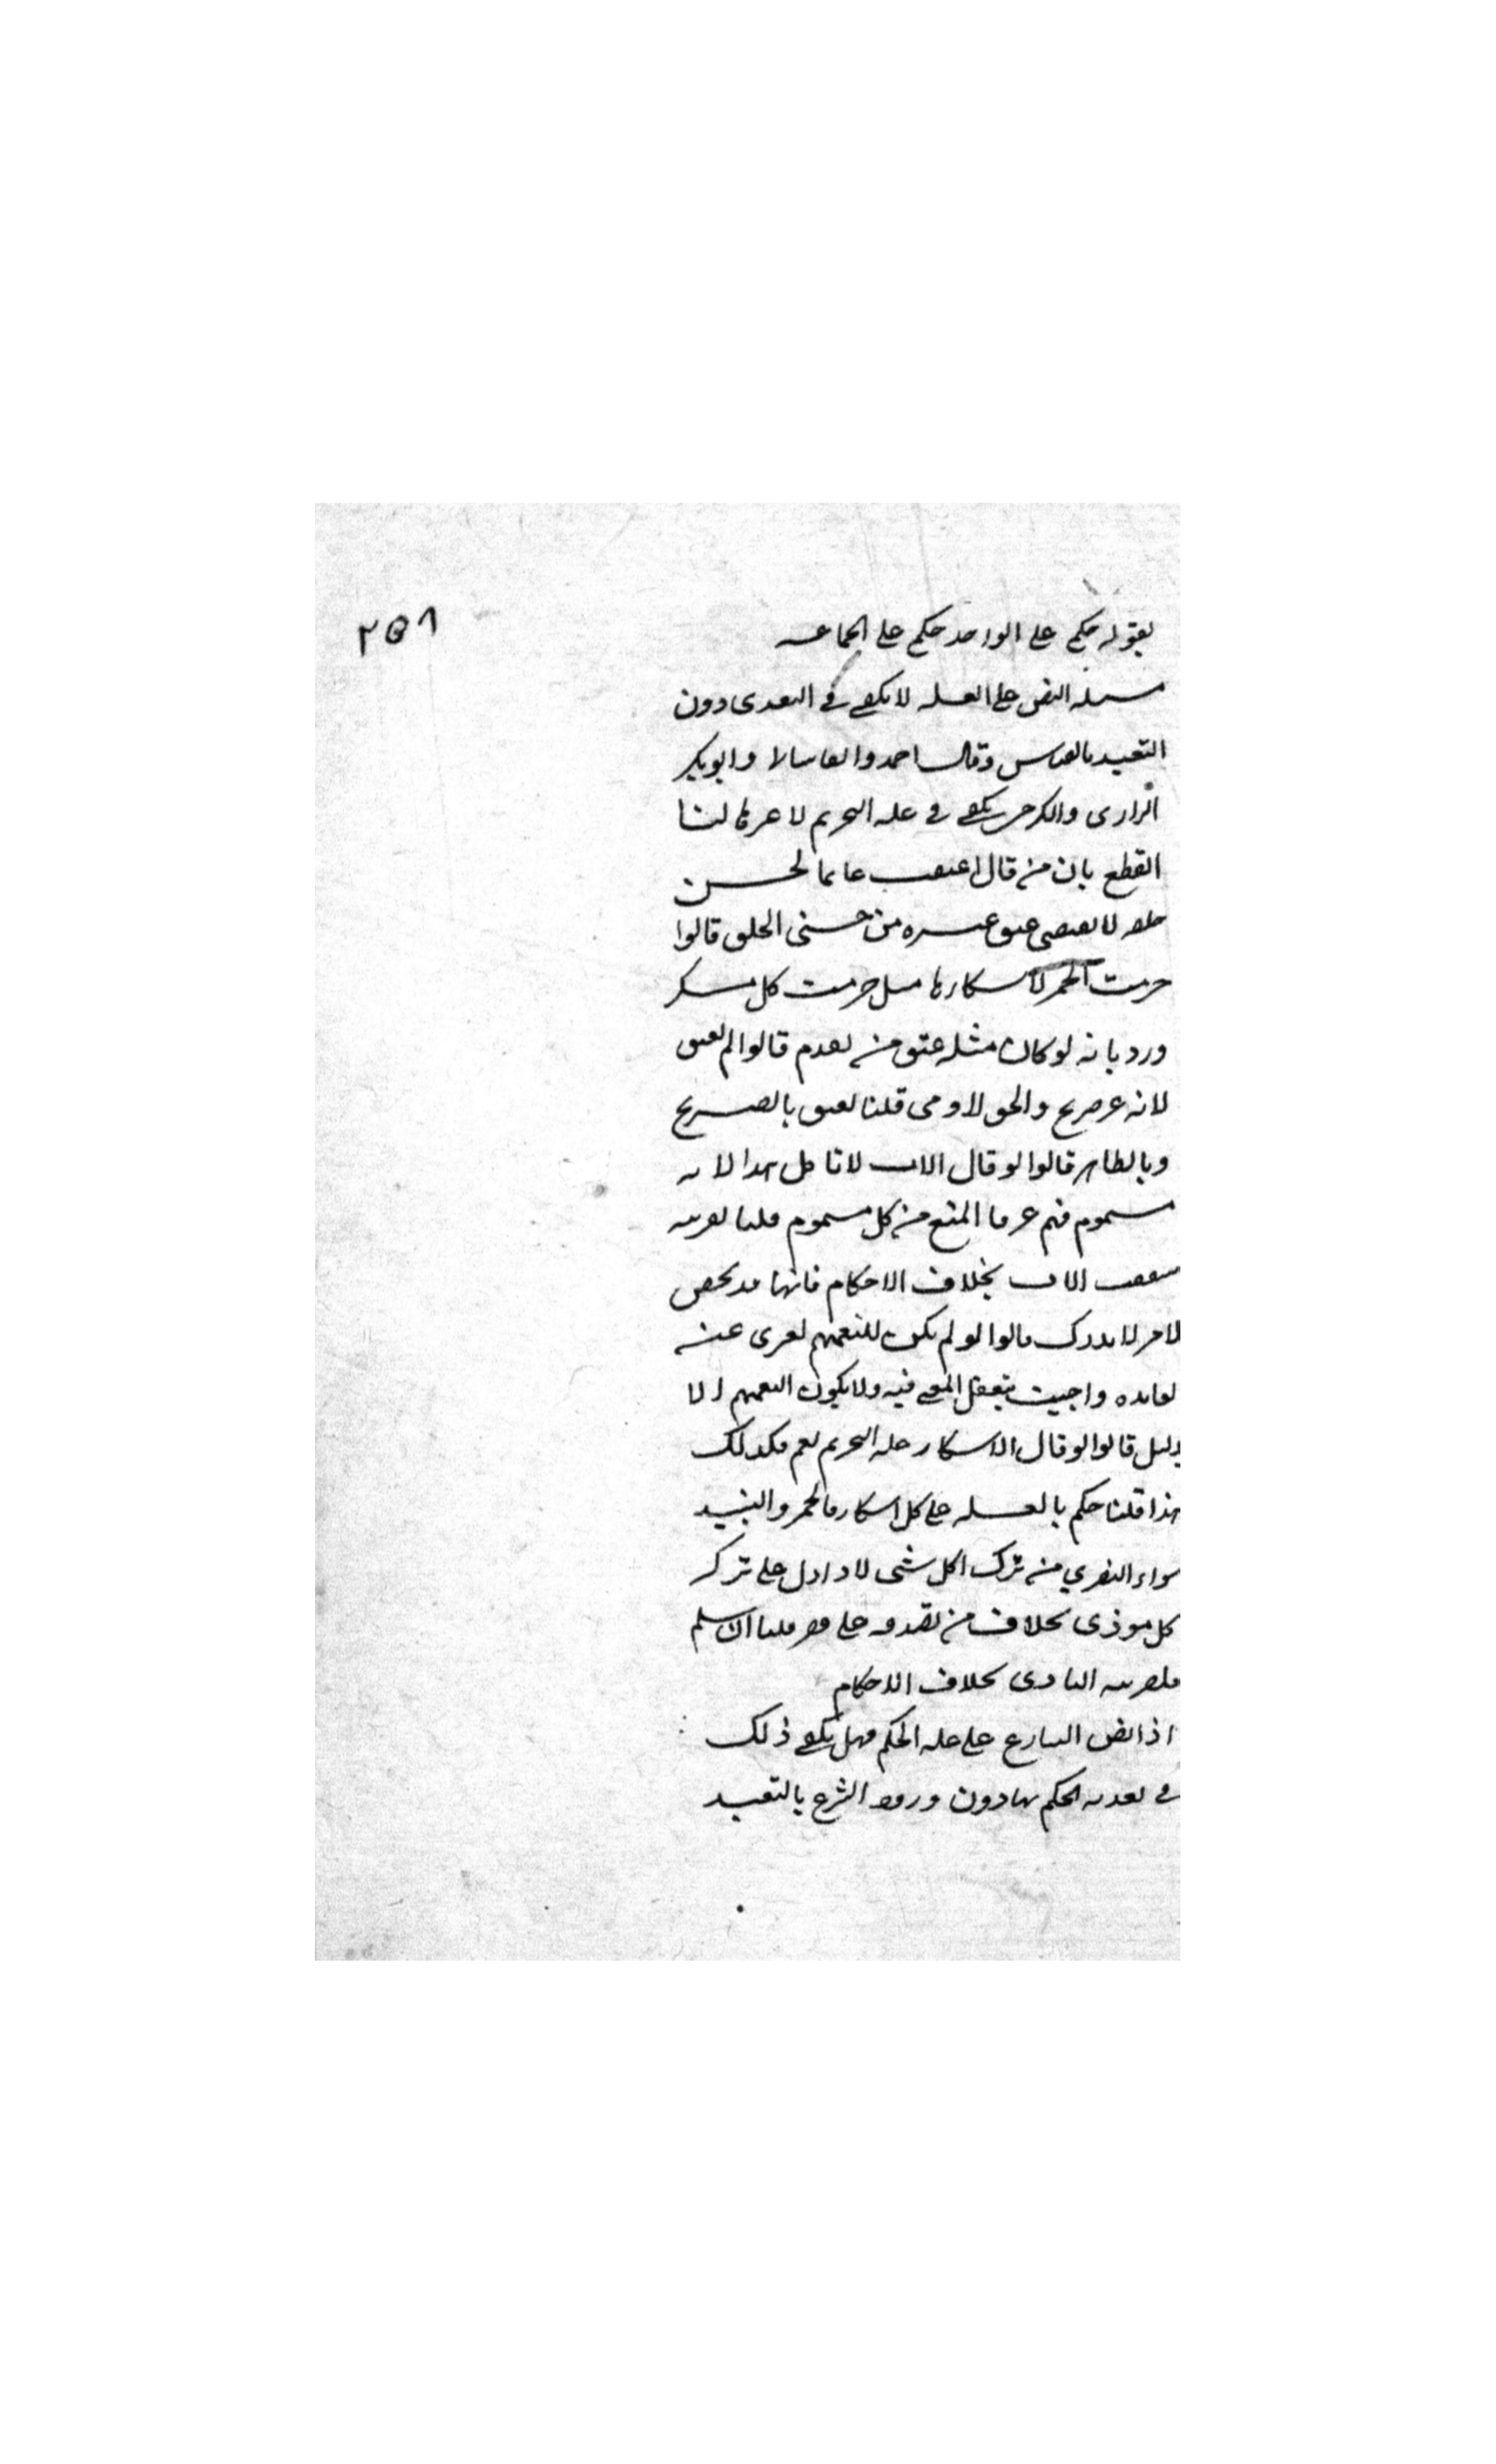 ٢٥٨
بقوله حكمي على الواحد حكمي على الجماعة
مسئلة النص على العلة لا يكفي في التعدي دون
التعبد بالقياس وقال احمد والقاساني وابو بكر
الرازي والكرخي يكفي في علة التحريم لا غيرها لنا
القطع بان من قال اعتقت غانما لحسن
خلقه لا يقتضي عتق غيره من حسني الخلق قالوا
حرمت الخمر لاسكارها مثل حرمت كل مسكر
ورد بانه لو كان مثله عتق من تقدم قالوا لم يعتق
لانه غير صريح والحق لادمي قلنا يعتق بالصريح
وبالظاهر قالوا لو قال الاب لا تاكل هذا لانه
مسموم فهم عرفا المنع من كل مسموم قلنا لقرينة
شفقة الاب بخلاف الاحكام فانها قد تخص
لامر لا يدرك قالوا لو لم يكن للتعميم لعري عن
الفائدة واجيب بتعقل المعنى فيه ولا يكون التعميم الا
بدليل قالوا لو قال الاسكار علة التحريم لعم فكذلك
هذا قلنا حكم بالعلة على كل اسكار فالخمر والنبيذ
سواء البصري من ترك اكل شي لاذاه دل على تركه
كل موذي بخلاف من تصدق على فقير قلنا ان سلم
فلقرينة التاذي بخلاف الاحكام
اذا نص الشارع على علة الحكم فهل يكفي ذلك
في تعدية الحكم بها دون ورود الشرع بالتعبد